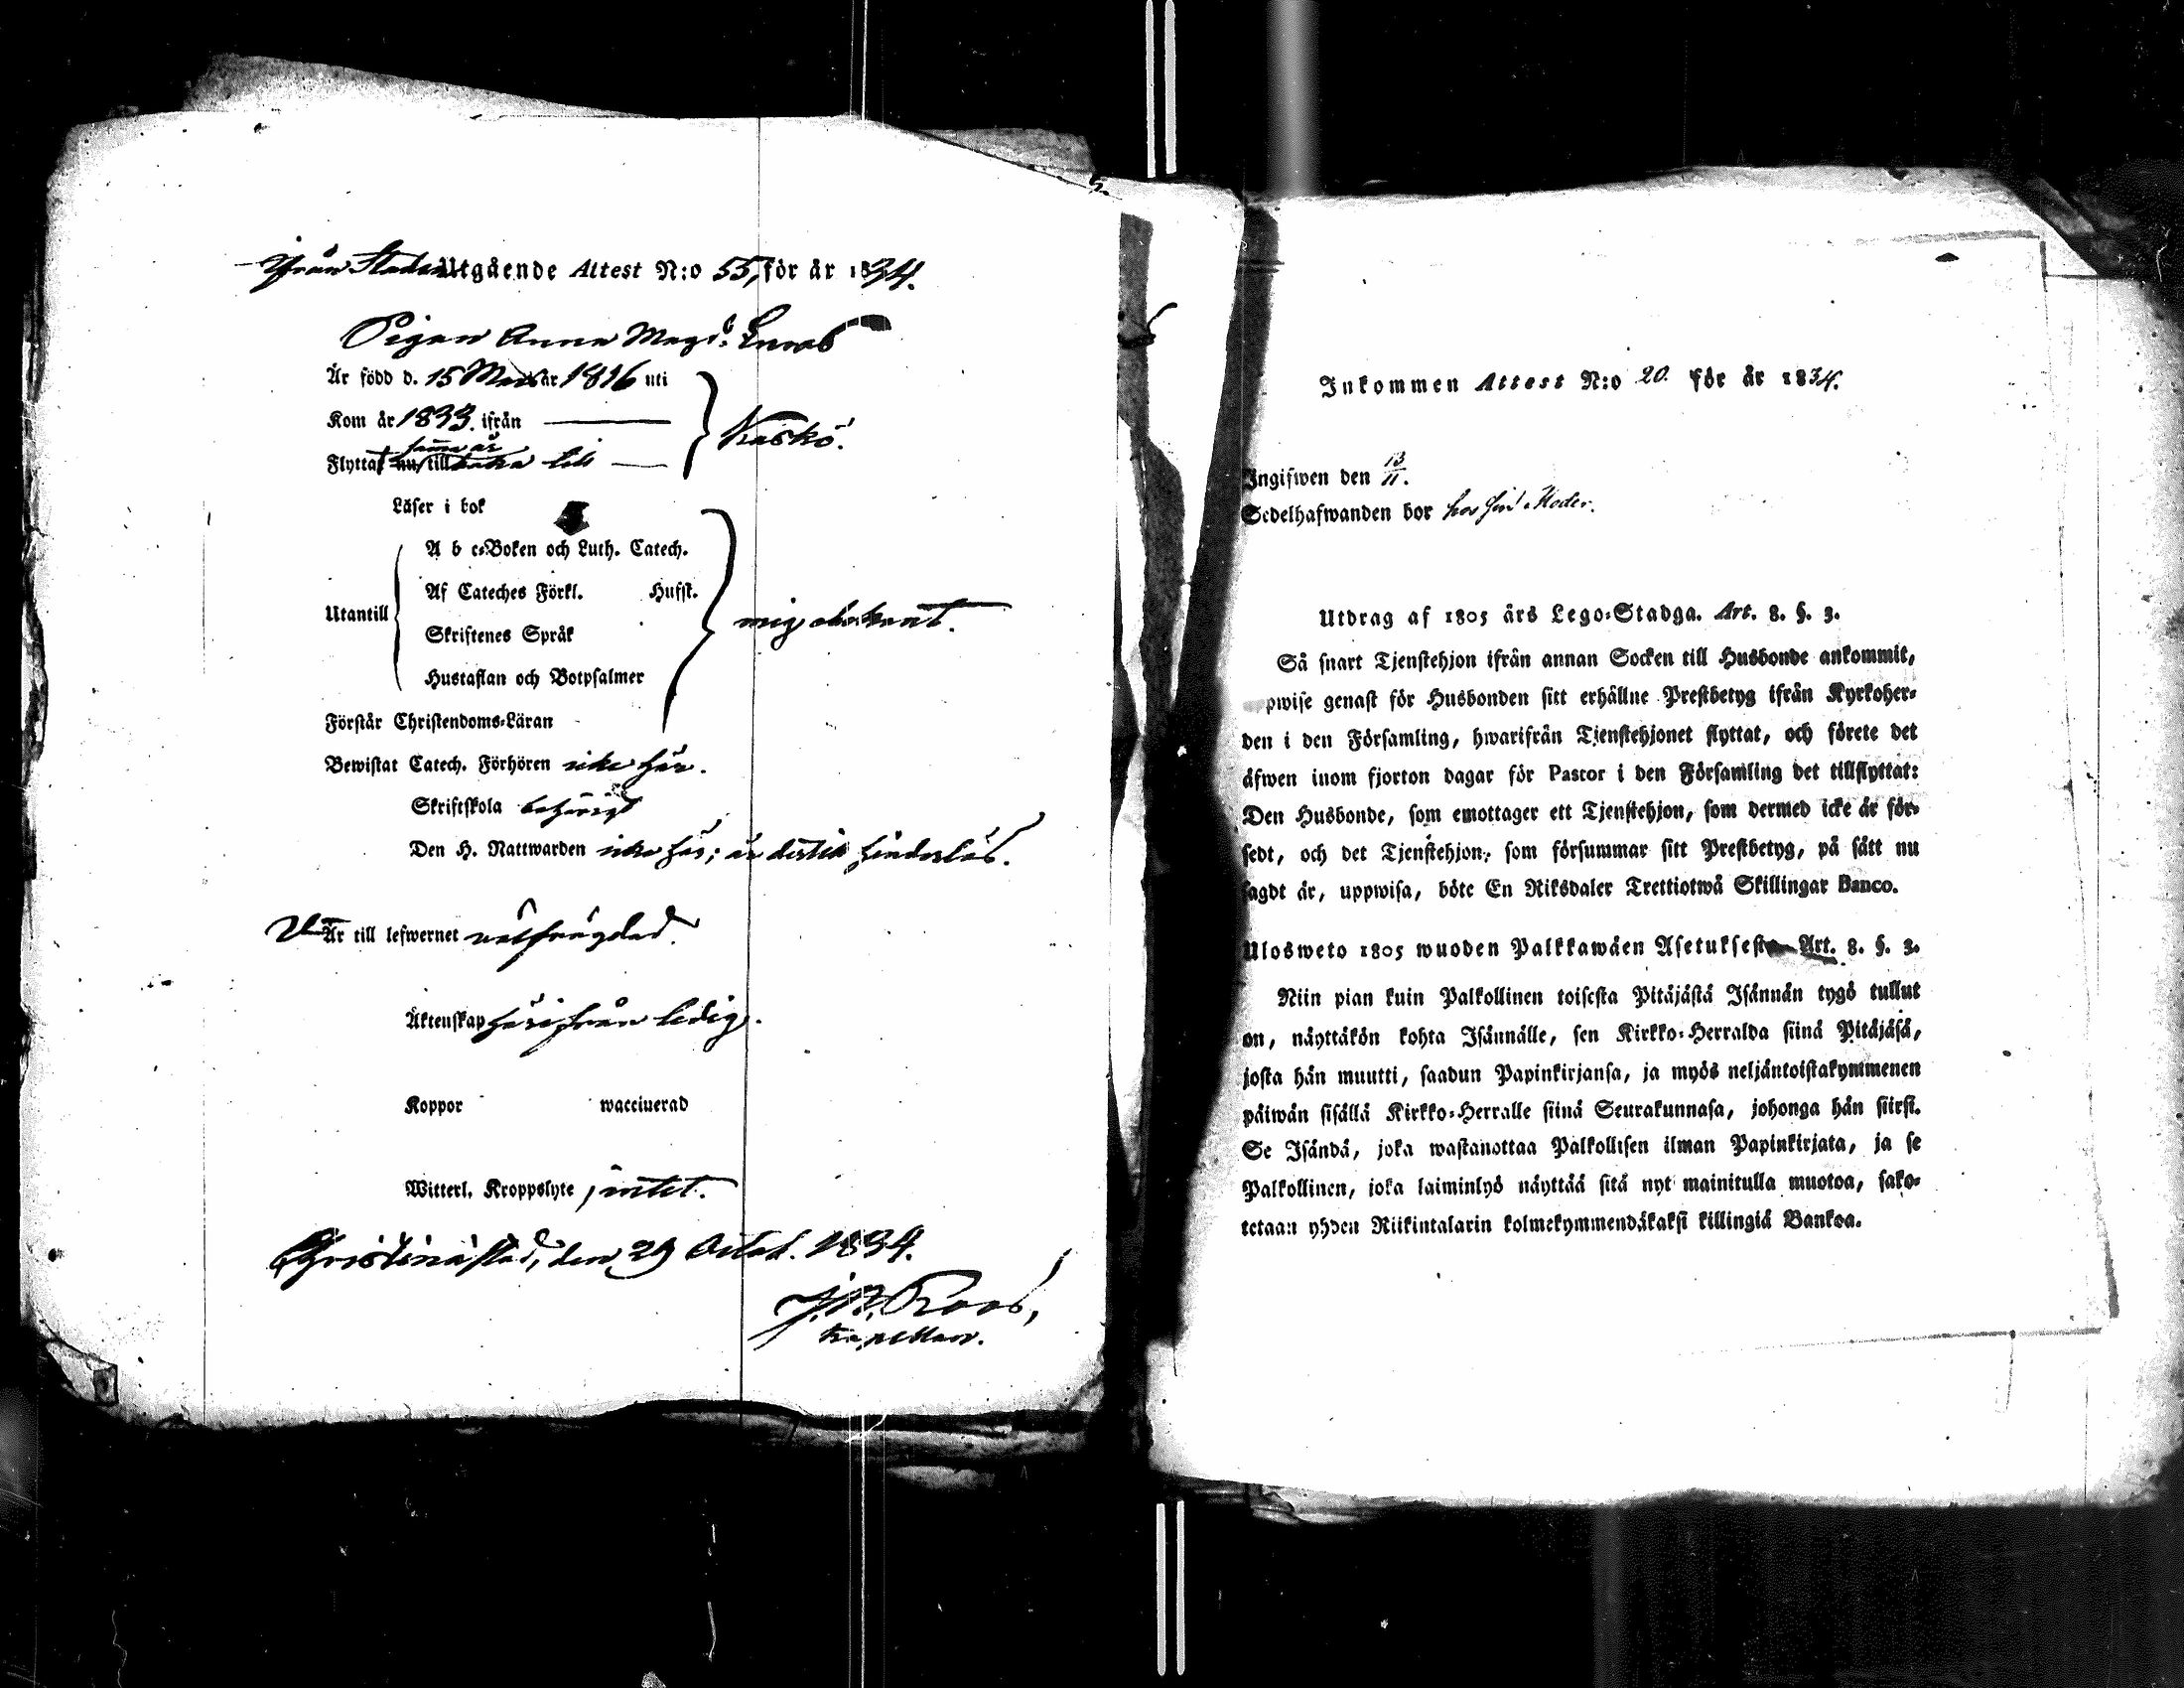 Från Staden Utgående Attest N:o 55, för år 1834.
Pigan Anna Magd:
Är född d. 15 Mars år 1816 uti
Kom år 1833. ifrån
Kaskö.
samma år
Flyttat nu tillbaka
Läser i bok
A b c-Boken och Luth. Catech.
Af Cateches Förkl. Husst.
Utantill
Skriftenes Språk
mig obekant.
Hustaflan och Botpsalmer
Förstår Christendoms-Läran
Bewistat Catech. Förhören icke här.
Skriftskola behörigt
Den H. Nattwarden icke här; är dertill hinderlös.
Är till lefwernet välfrägdad.
Äktenskap härifrån ledig.
Koppor wacciuerad
Witterl. Kroppslyte intet.
Christinæstad, den 29 Octob. 1834.
J. B. Roos,
Kapellan.
Inkommen Attest N:o 20. för år 1834.
Ingifwen den 13/11.
Sedelhafwanden bor hos sin Moder.
Utdrag af 1805 års Lego-Stadga. Art. 8. §. 3.
Så snart Tjenstehjon ifrån annan Socken till Husbonde ankommit,
pwise genast för Husbonden sitt erhållne Prestbetyg ifrån Kyrkoher-
den i den Församling, hwarifrån Tjenstehjonet flyttat, och förete det
äfwen inom fjorton dagar för Pastor i den Församling det tillflyttat:
Den Husbonde, som emottager ett Tjenstehjon, som dermed icke är för-
sedt, och det Tjenstehjon, som försummar sitt Prestbetyg, på sätt nu
sagdt är, uppwisa, böte En Riksdaler Trettiotwå Skillingar Banco.
Ulosweto 1805 wuoden Palkkawäen Asetuksesta Art. 8. §. 3.
Niin pian kuin Palkollinen toisesta Pitäjästä Isännän tygö tullut
on, näyttäkön kohta Isännälle, sen Kirkko-Herralda siinä Pitäjäsä,
josta hän muutti, saadun Papinkirjansa, ja myös neljäntoistakymmenen
päiwän sisällä Kirkko-Herralle siinä Seurakunnasa, johonga hän siirsi.
Se Isändä, joka wastanottaa Palkollisen ilman Papinkirjata, ja se
Palkollinen, joka laiminlyö näyttää sitä nyt mainitulla muotoa, sako-
tetaan yhden Riikintalarin kolmekymmendäkaksi killingiä Bankoa.